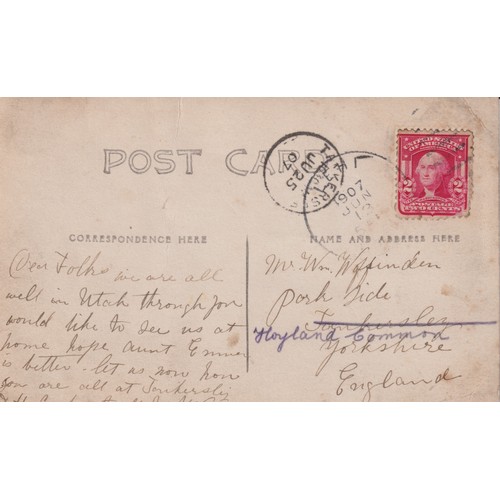 POST CARD
TANKERSLEY
JU 25
07
1907
JUN
12
UNITED STATES OF AMERICA
2 2
POSTAGE
TWO CENTS
CORRESPONDENCE HERE
NAME AND ADDRESS HERE
Dear Folks we are all
well in Utah through you
would like to see us at
home hope aunt Emma
is better. let us now how
you are all at Tankersley
Mr Wm Woffinden
Park Side
Tankersley
Hoyland Common
Yorkshire
England